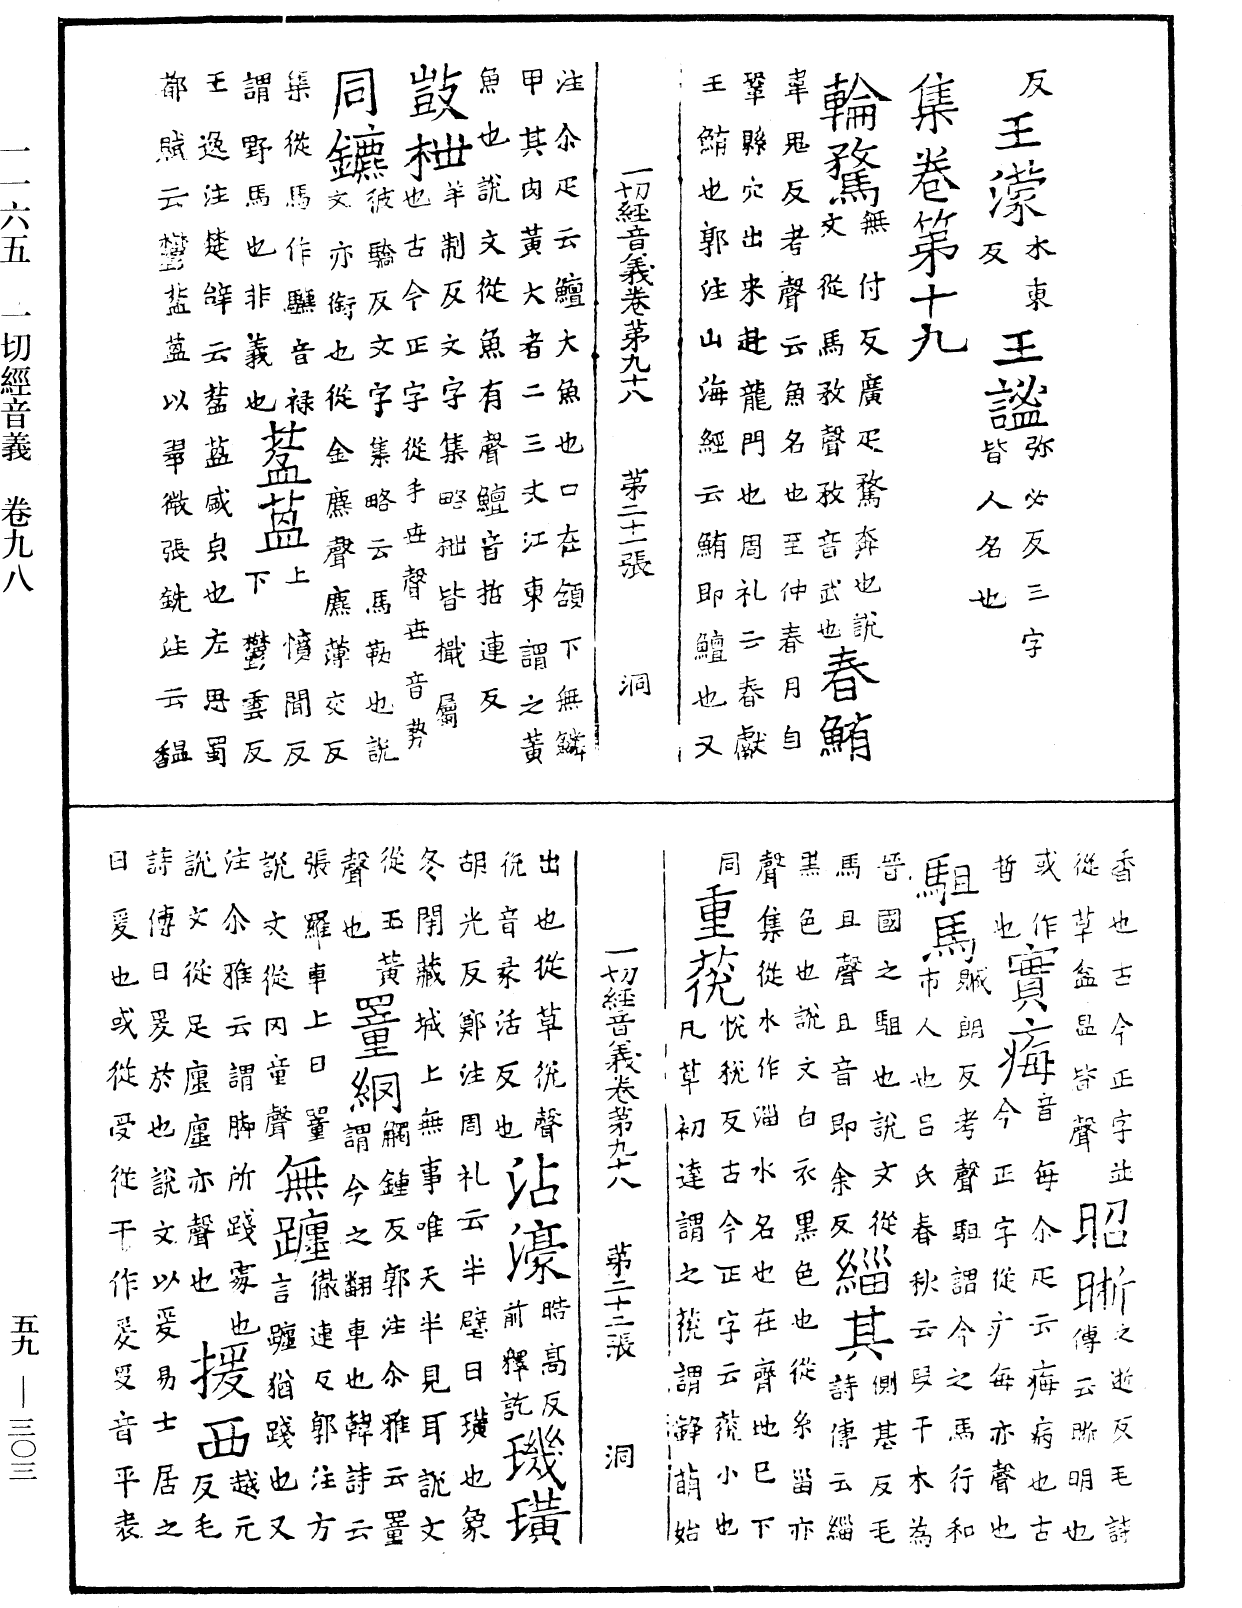 反王濛水東反王謐弥必反三字皆人名也
集卷第十九
輪騖無付反廣疋騖奔也說文從馬敄聲敄音武也春鮪
韋鬼反考聲云魚名也至仲春月自
鞏縣穴出来赴龍門也周礼云春獻
王鮪也郭注山海經云鮪即鱣也又
一切經音義卷第九十八　第二十一張　洞
注尒疋云鱣大魚也口在頷下無鱗
甲其肉黃大者二三丈江東謂之黃
魚也說文從魚有聲鱣音哲連反
鼓枻羊制反文字集略拙皆檝屬也古今正字從手世聲世音勢
同鑣彼驕反文字集略云馬勒也說文亦銜也從金麃聲麃薄交反
集從馬作驫音禄上憤聞反
謂野馬也非義也葐蒀下鬱雲反
王逸注楚辝云葐蒀盛皃也左思蜀
都賦云鬱葐蒀以翠微張銑注云馧
香也古今正字並
從草盆昷皆聲昭晣之逝反毛詩傳云晣明也
或作哲也寳痗音每尒疋云痗病也古今正字從疒每亦聲也
駔馬臧朗反考聲駔謂今之馬行和市人也呂氏春秋云段干木為
晉國之駔也說文從
馬且聲且音即余反緇其側基反毛詩傳云緇
黑色也說文白衣黑色也從糸甾亦
聲集從水作淄水名也在齊地已下
同重莌悅稅反古今正字云莌小也凡草初達謂之莌謂𦯬萌始
一切經音義卷第九十八　第二十二張　洞
出也從草兊聲
兊音柔活反也沾濠時高反前釋訖璣璜
胡光反鄭注周礼云半璧曰璜也象
冬閉藏城上無事唯天半見耳說文
從玉黃
聲也罿網觸鍾反郭注尒雅云罿謂今之翻車也韓詩云
張羅車上曰罿
說文從网童聲無躔徹連反郭注方言躔猶踐也又
注尒雅云謂脚所踐處也
說文從足廛廛亦聲也援西越元反毛
詩傳曰爰於也說文以爰易士居之
曰爰也或從受從干作爰受音平表
一一六五　一切經音義　卷九八
五九——三〇三